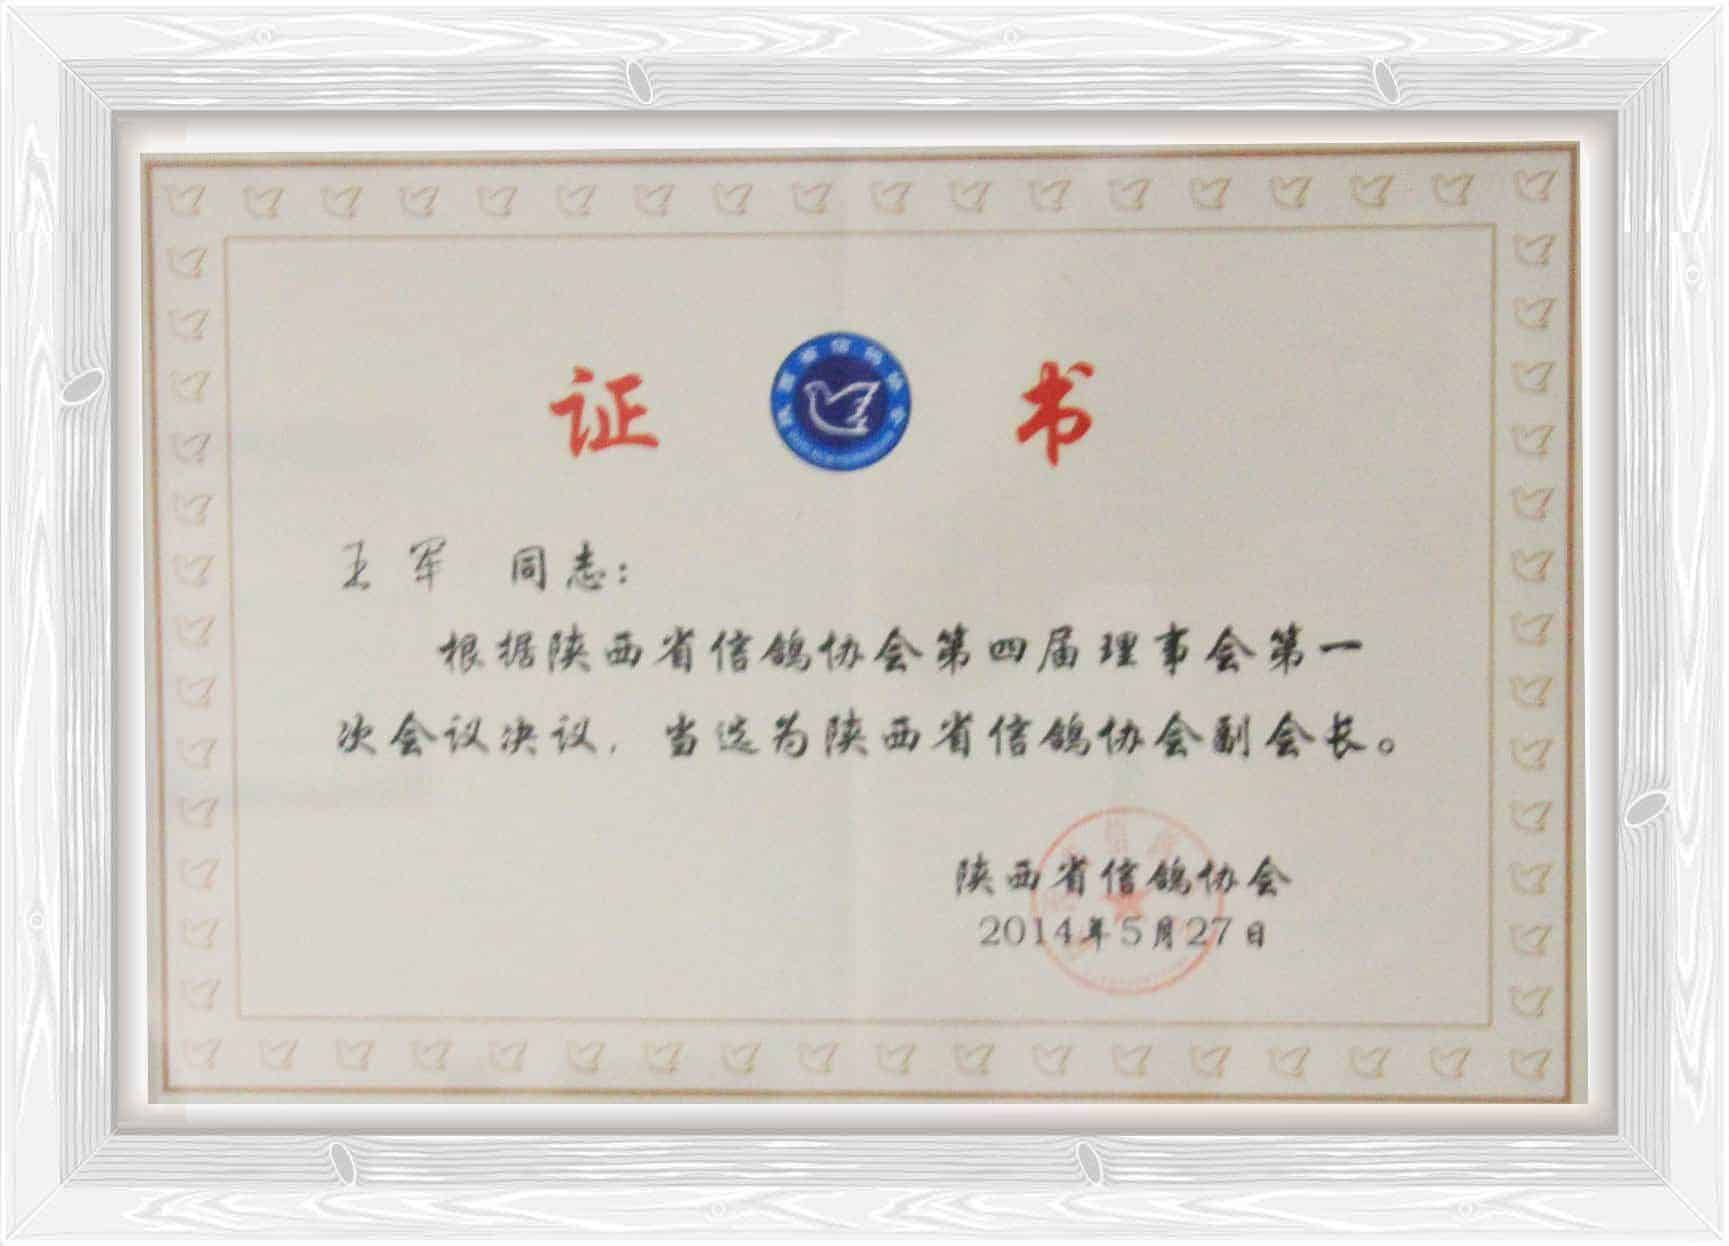 证 书
王军 同志：
根据陕西省信鸽协会第四届理事会第一
次会议决议，当选为陕西省信鸽协会副会长。
陕西省信鸽协会
2014年5月27日